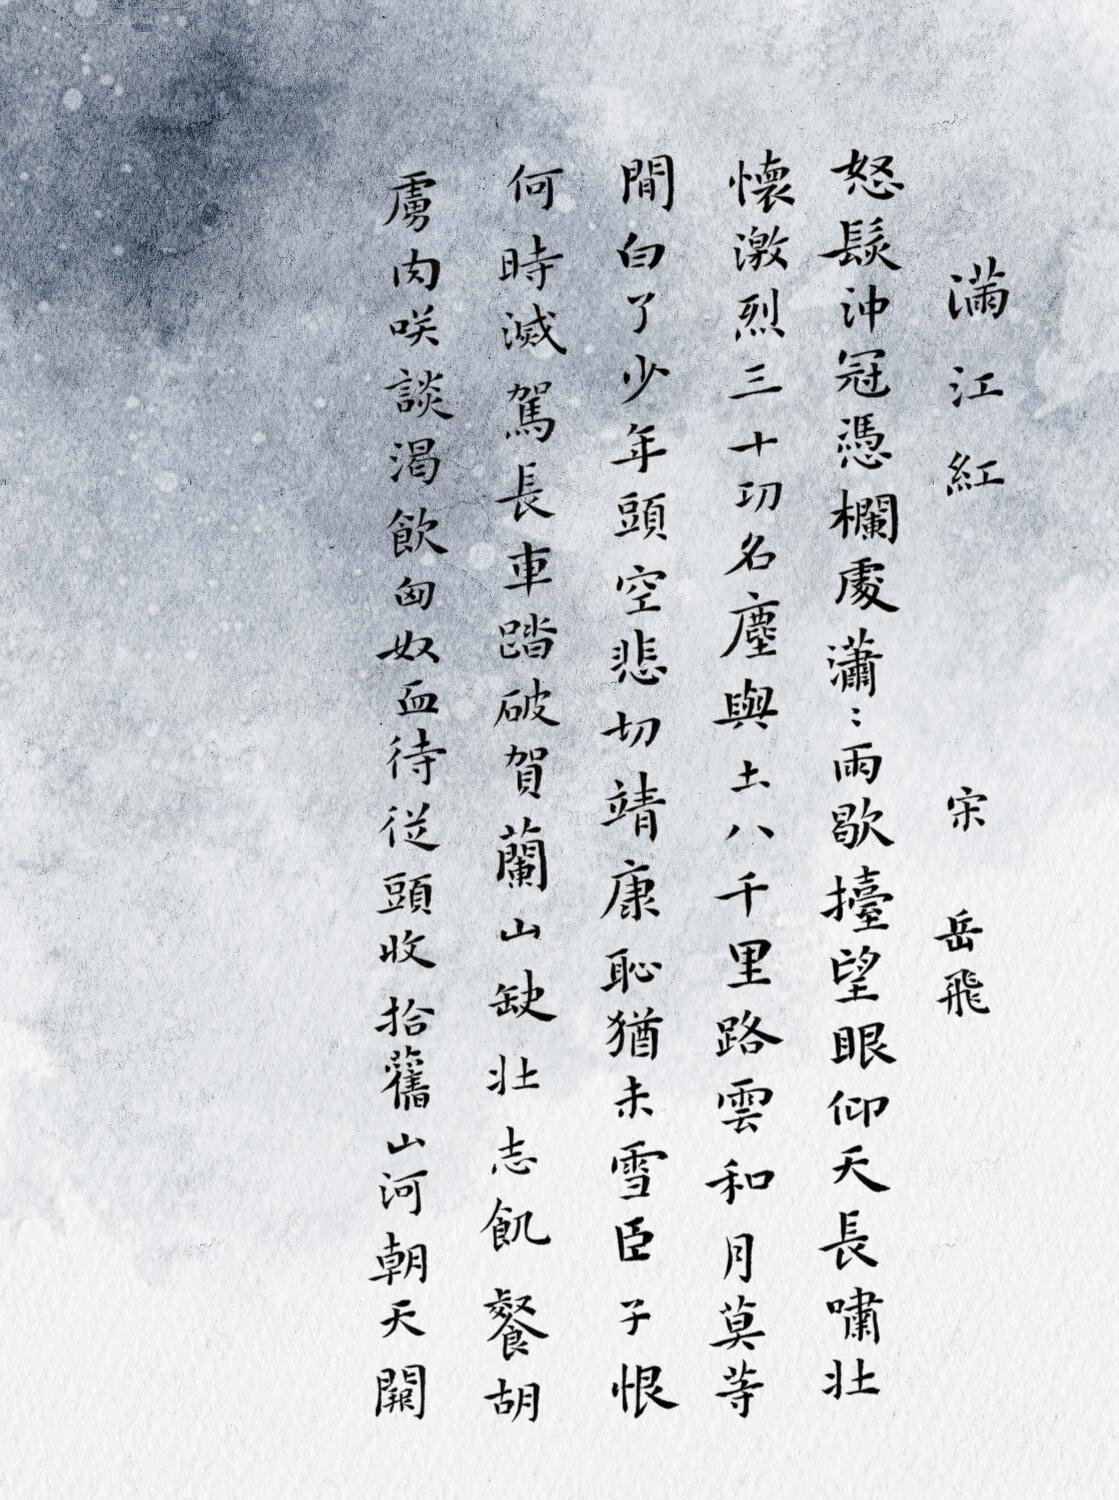 滿江紅 宋 岳飛
怒髮沖冠憑欄處瀟:雨歇擡望眼仰天長嘯壯
懷激烈三十功名塵與土八千里路雲和月莫等
閒白了少年頭空悲切靖康恥猶未雪臣子恨
何時滅駕長車踏破賀蘭山缺壯志飢餐胡
虜肉咲談渴飲匈奴血待従頭收拾舊山河朝天闕